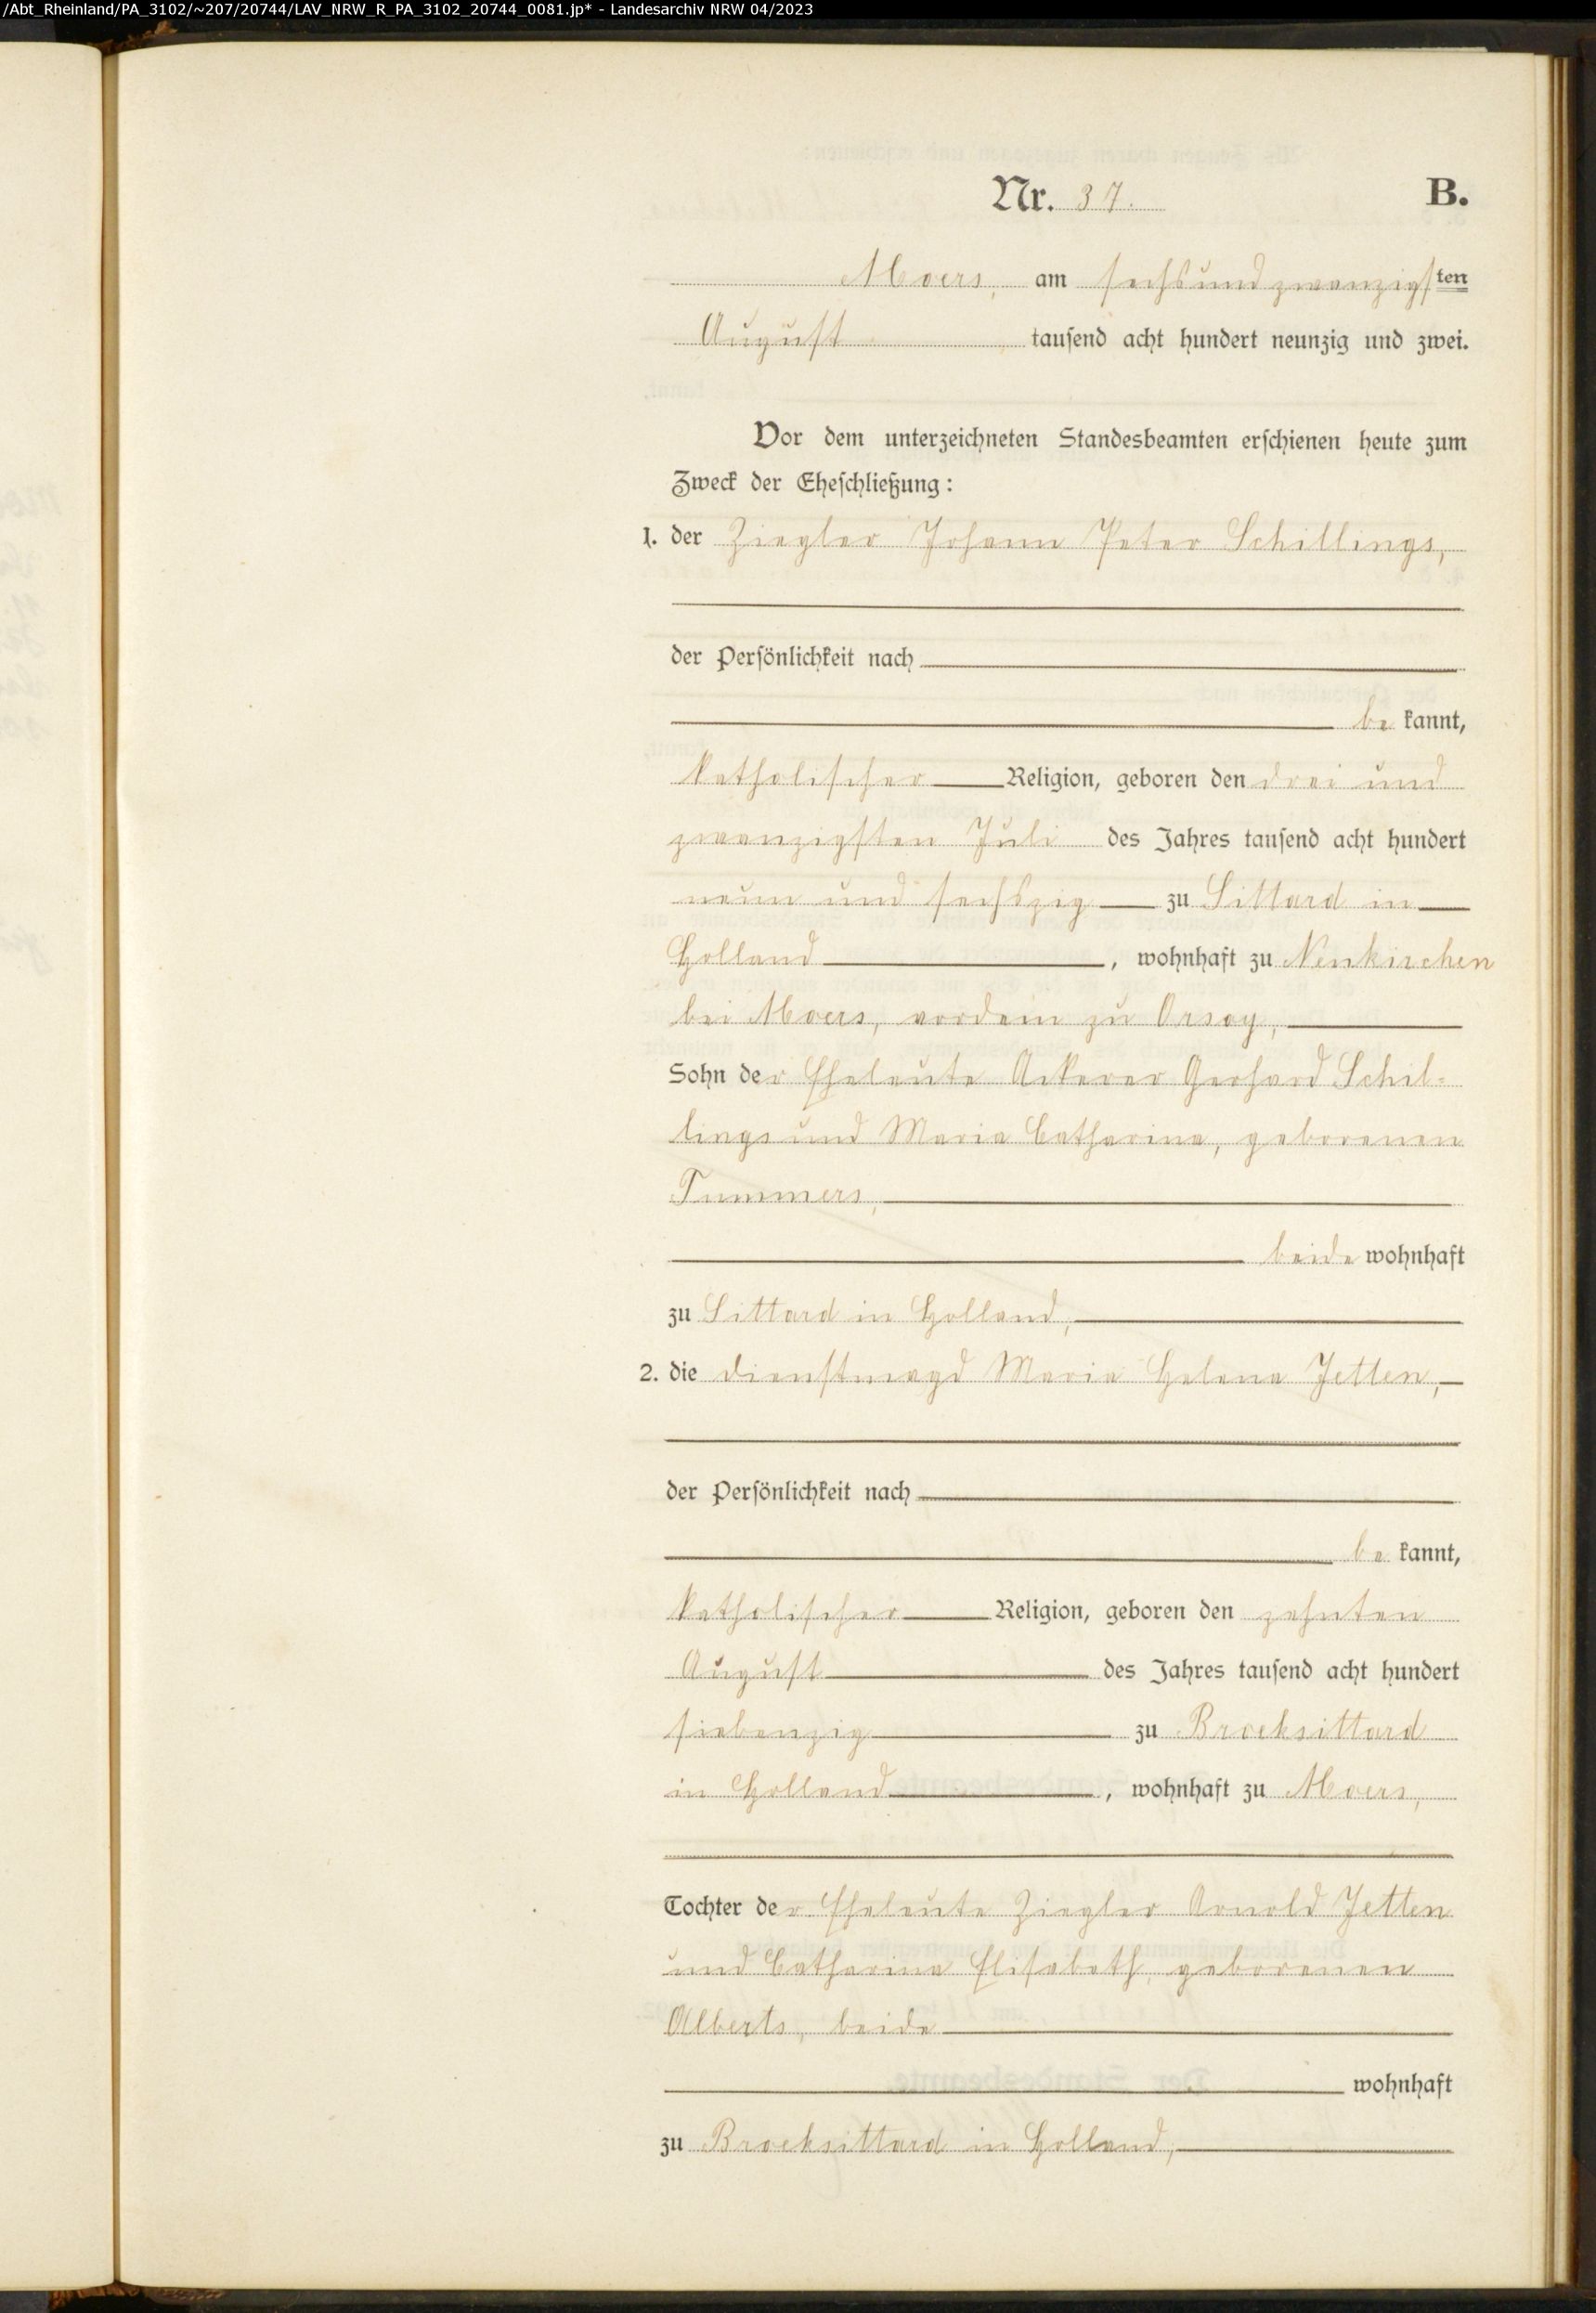 /Abt_Rheinland/PA_3102/~207/20744/LAV_NRW_R_PA_3102_20744_0081.jp* - Landesarchiv NRW 04/2023
Nr. 37. B.
Moers, am sechsundzwanzigsten
August tausend acht hundert neunzig und zwei.
Vor dem unterzeichneten Standesbeamten erschienen heute zum
Zweck der Eheschließung:
1. der Ziegler Johann Peter Schillings,
der Persönlichkeit nach
be kannt,
katholischer Religion, geboren den drei und
zwanzigsten Juli des Jahres tausend acht hundert
neun und sechszig zu Sittard in
Holland, wohnhaft zu Neukirchen
bei Moers, vordem zu Orsoy,
Sohn der Eheleute Ackerer Gerhard Schil-
lings und Maria Catharina, geborenen
Tummers,
beide wohnhaft
zu Sittard in Holland,
2. die Dienstmagd Maria Helena Jetten,
der Persönlichkeit nach
be kannt,
katholischer Religion, geboren den zehnten
August des Jahres tausend acht hundert
siebenzig zu Broeksittard
in Holland, wohnhaft zu Moers,
Tochter der Eheleute Ziegler Arnold Jetten
und Catharina Elisabeth, geborenen
Alberts, beide
wohnhaft
zu Broeksittard in Holland,